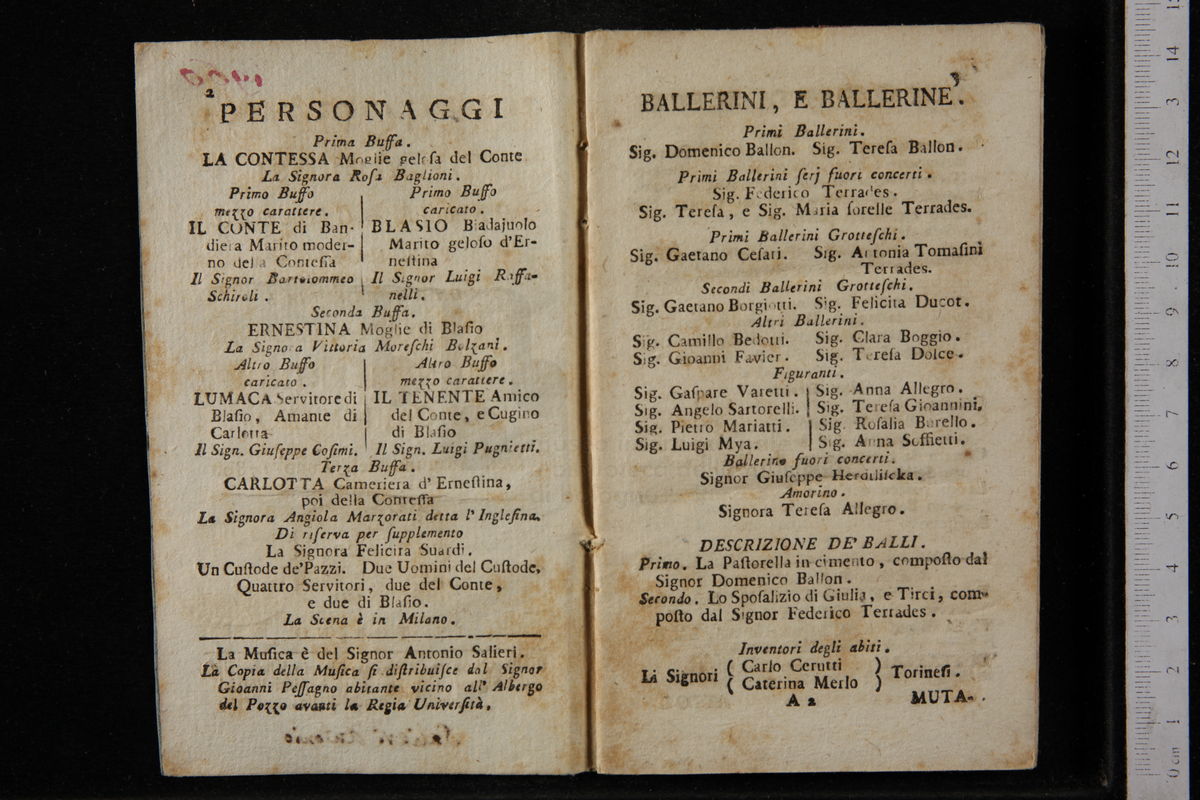 2
PERSONAGGI
Prima Buffa.
LA CONTESSA Moglie gelosa del Conte
La Signora Rosa Baglioni.
Primo Buffo
mezzo carattere.
IL CONTE di Ban-
diera Marito moder-
no della Contessa
Il Signor Bartolommeo
Schiroli.
Primo Buffo
caricato.
BLASIO Biadajuolo
Marito geloso d'Er-
nestina
Il Signor Luigi Raffa-
nelli.
Seconda Buffa.
ERNESTINA Moglie di Blasio
La Signora Vittoria Moreschi Bolzani.
Altro Buffo
caricato.
LUMACA Servitore di
Blasio, Amante di
Carlotta
Il Sign. Giuseppe Cosimi.
Altro Buffo
mezzo carattere.
IL TENENTE Amico
del Conte, e Cugino
di Blasio
Il Sign. Luigi Pugnetti.
Terza Buffa.
CARLOTTA Cameriera d'Ernestina,
poi della Contessa
La Signora Angiola Marzorati detta l'Inglesina.
Di riserva per supplemento
La Signora Felicita Suardi.
Un Custode de'Pazzi. Due Uomini del Custode,
Quattro Servitori, due del Conte,
e due di Blasio.
La Scena è in Milano.
La Musica è del Signor Antonio Salieri.
La Copia della Musica si distribuisce dal Signor
Gioanni Pessagno abitante vicino all' Albergo
del Pozzo avanti la Regia Università.
3
BALLERINI, E BALLERINE.
Primi Ballerini.
Sig. Domenico Ballon. Sig. Teresa Ballon.
Primi Ballerini serj fuori concerti.
Sig. Federico Terrades.
Sig. Teresa, e Sig. Maria sorelle Terrades.
Primi Ballerini Grotteschi.
Sig. Gaetano Cesari. Sig. Antonia Tomasini
Terrades.
Secondi Ballerini Grotteschi.
Sig. Gaetano Borgiotti. Sig. Felicita Ducot.
Altri Ballerini.
Sig. Camillo Bedotti. Sig. Clara Boggio.
Sig. Gioanni Favier. Sig. Teresa Dolce.
Figuranti.
Sig. Gaspare Varetti. Sig. Anna Allegro.
Sig. Angelo Sartorelli. Sig. Teresa Gioannini.
Sig. Pietro Mariatti. Sig. Rosalia Borello.
Sig. Luigi Mya. Sig. Anna Soffietti.
Ballerino fuori concerti.
Signor Giuseppe
Amorino.
Signora Teresa Allegro.
DESCRIZIONE DE' BALLI.
Primo. La Pastorella in cimento, composto dal
Signor Domenico Ballon.
Secondo. Lo Sposalizio di Giulia, e Tirci, com-
posto dal Signor Federico Terrades.
Inventori degli abiti.
Li Signori ( Carlo Cerutti ) Torinesi.
( Caterina Merlo )
A 2 MUTA-
0 cm 1 2 3 4 5 6 7 8 9 10 11 12 3 14